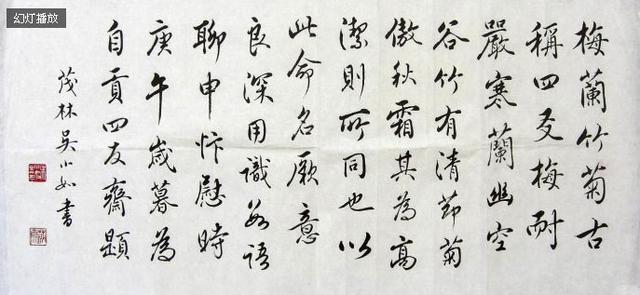 幻灯播放
梅蘭竹菊古
稱四友梅耐
嚴寒蘭幽空
谷竹有清節菊
傲秋霜其為高
潔則所同也以
此命名厥意
良深用識數語
聊申忭慰時
庚午歲暮為
自貢四友齋題
茂林吳小如書